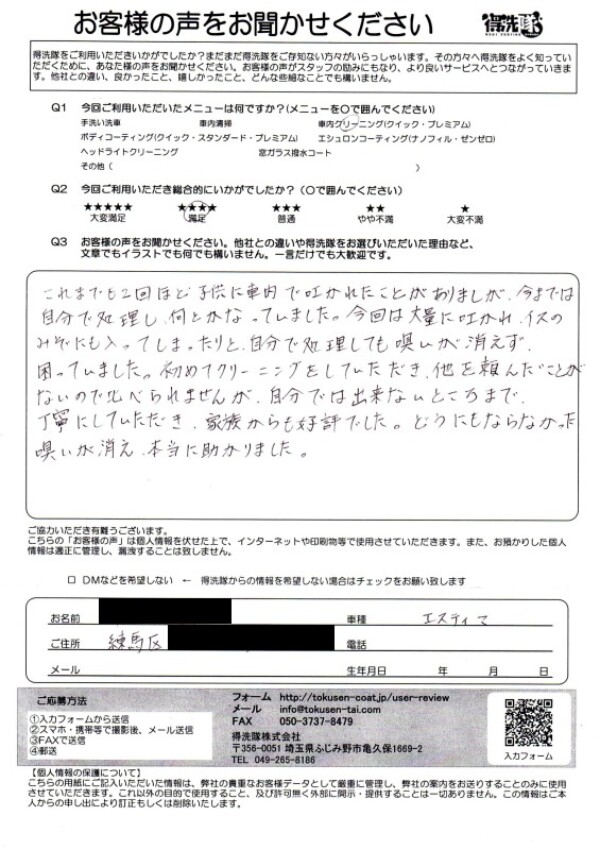 お客様の声をお聞かせください
得洗隊
得洗隊をご利用いただきいかがでしたか？まだまだ得洗隊をご存知ない方々がいらっしゃいます。その方々へ得洗隊をよく知っていただくために、あなた様の声をお聞かせください。お客様の声がスタッフの励みにもなり、より良いサービスへとつながっていきます。他社との違い、良かったこと、嬉しかったこと、どんな些細なことでも構いません。
Q1 今回ご利用いただいたメニューは何ですか？（メニューを○で囲んでください）
手洗い洗車 車内清掃 車内クリーニング（クイック・プレミアム）
ボディコーティング（クイック・スタンダード・プレミアム） エシュロンコーティング（ナノフィル・ゼンゼロ）
ヘッドライトクリーニング 窓ガラス撥水コート
その他（ ）
Q2 今回ご利用いただき総合的にいかがでしたか？（○で囲んでください）
★★★★★ ★★★★ ★★★ ★★ ★
大変満足 満足 普通 やや不満 大変不満
Q3 お客様の声をお聞かせください。他社との違いや得洗隊をお選びいただいた理由など、
文章でもイラストでも何でも構いません。一言だけでも大歓迎です。
これまでも2回ほど子供に車内で吐かれたことがありましが、今までは
自分で処理し、何とかなっていました。今回は大量に吐かれ、イスの
みぞにも入ってしまったりと、自分で処理しても嗅いが消えず、
困っていました。初めてクリーニングをしていただき、他を頼んだことが
ないので比べられませんが、自分では出来ないところまで、
丁寧にしていただき、家族からも好評でした。どうにもならなかった
嗅いが消え、本当に助かりました。
ご協力いただき有難うございます。
こちらの「お客様の声」は個人情報を伏せた上で、インターネットや印刷物等で使用させていただきます。また、お預かりした個人
情報は適正に管理し、漏洩することは致しません。
□ DMなどを希望しない ← 得洗隊からの情報を希望しない場合はチェックをお願い致します
お名前 車種 エスティマ
ご住所 練馬区 電話
メール 生年月日 年 月 日
ご応募方法
①入力フォームから送信
②スマホ・携帯等で撮影後、メール送信
③FAXで送信
④郵送
フォーム http://tokusen-coat.jp/user-review
メール info@tokusen-tai.com
FAX 050-3737-8479
得洗隊株式会社
〒356-0051 埼玉県ふじみ野市亀久保1669-2
TEL 049-265-8186
入力フォーム
【個人情報の保護について】
こちらの用紙にご記入いただいた情報は、弊社の貴重なお客様データとして厳重に管理し、弊社の案内をお送りすることのみに使用
させていただきます。これ以外の目的で使用すること、及び許可無く外部に開示・提供することは一切ありません。この情報はご本
人からの申し出により訂正もしくは削除いたします。